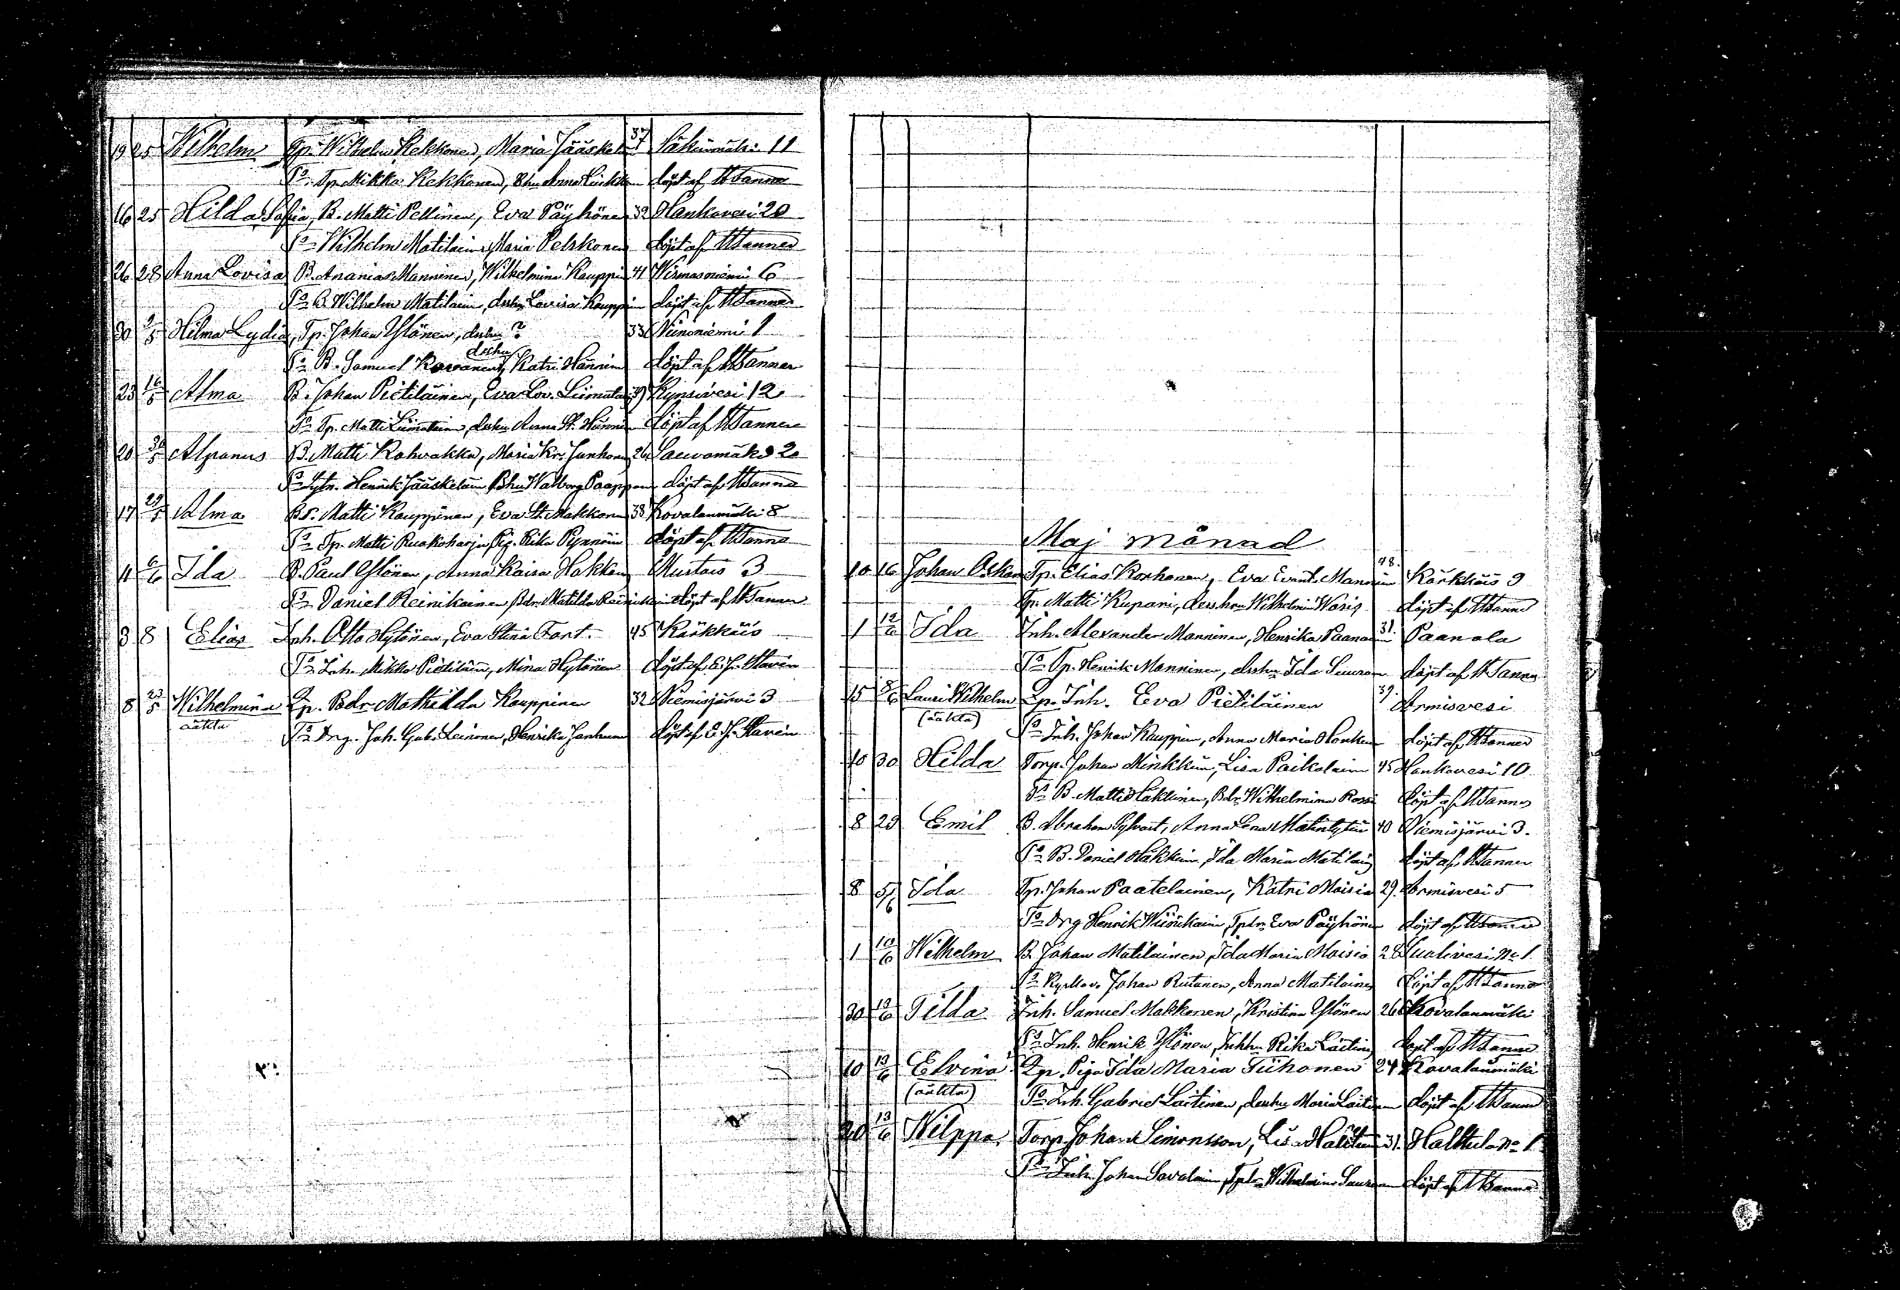 19 25 Wilhelm Tp. Wilhelm Kekkonen, Maria Jääskel 37 Säkinmäki 11
Fa. Tp. Mikko Kekkonen, Bhu Anna Liukko döpt af WTanner
16 25 Hilda Sofia, B. Matti Pellinen, Eva Päyhönen 39 Hankavesi 20
Fa Wilhelm Matilain, Maria Pelkonen döpt af WTanner
26 28 Anna Lovisa B. Ananias Manninen, Wilhelmina Kauppin 41 Wirmasniemi 6
Fa B. Wilhelm Matilain, dess hu Lovisa Kauppin döpt af WTanner
30 9/5 Hilma Lydia, Tp. Johan Ylönen, dess hu ? 33 Niinoniemi 1
Fa B. Samuel Korvanen, dess hu Katri Hännin döpt af WTanner
23 16/5 Alma B. Johan Pietiläinen, Eva Lov. Liimatai 39 Kynsivesi 12
Fa Tp. Matti Liimatain, dess hu Anna St. Hännin döpt af WTanner
20 30/5 Alpanus B. Matti Kahvakka, Maria Kr. Janhon 26 Saewomäki 2
Fa Henrik Jääskeläin, Bhu Walborg Paappan döpt af WTanner
17 29/5 Alma Bs. Matti Kauppinen, Eva St. Makkonen 38 Kovalanmäki 8
Fa Tp. Matti Ruokoharju, Pig. Rika Pynnöin döpt af WTanner
11 6/6 Ida B. Paul Ylönen, Anna Kaisa Hakkar Mustais 3
Fa Daniel Reinikainen, Bdr. Matilda Reinikain döpt af WTanner
3 8 Elias Inh. Otto Hytönen, Eva Stina Fort. 45 Kärkkäis
Fa Inh. Mikko Pietiläin, Mina Hytönen döpt af E. J. Stavén
8 23/5 Wilhelmina Qp. Bdr Mathilda Kauppinen 32 Niemisjärvi 3
oäkta Fa Drg. Joh. Gab. Leinonen, Henrika Janhunen döpt af E. J. Stavén
Maj månad
10 16 Johan Oskar Tp. Elias Korhonen, Eva Evant. Mannin 48. Kärkkäis 9
Tp. Matti Kupari, dess hu Wilhelmin Waris döpt af WTanner
1 12/6 Ida Inh. Alexander Manninen, Henrika Paanan 31. Paanala
Fa Tp. Henrik Manninen, dess hu Ida Suuron döpt af WTanner
15 8/6 Lauri Wilhelm Qp. Inh. Eva Pietiläinen 39. Armisvesi
(oäkta) Fa Inh. Johan Kauppin, Anna Maria Honken döpt af WTanner
10 30 Hilda Torp. Johan Minkkin, Lisa Paikolain 45 Hankavesi 10
Fa B. Matti Häkkinen, Bdr. Wilhelmina Rossi döpt af WTanner
8 29 Emil B. Abraham Sylvast, Anna Lena Matintytär 40 Niemisjärvi 3.
Fa B. Daniel Häkkin, Ida Maria Matilain döpt af WTanner
8 5/6 Ida Tp. Johan Paatelainen, Katri Maisia 29. Armisvesi 5
Fa Drg Henrik Wiinikain, Tpdr. Eva Päyhönen döpt af WTanner
1 10/6 Wilhelm B. Johan Matilainen, Ida Maria Moisio 28 Kuulivesi No 1
Fa Kyrkov. Johan Rutanen, Anna Matilainen döpt af WTanner
30 13/6 Tilda Inh. Samuel Makkonen, Kristina Ylönen 26 Kovalanmäki
Fa Inh. Henrik Ylönen, Inhhu Rika Laitin döpt af WTanner
10 13/6 Elvina Qp. Piga Ida Maria Tiihonen 24 Kovalanmäki
(oäkta) Fa Inh. Gabriel Laitinen, dess hu Maria Laitinen döpt af WTanner
20 13/6 Wilppo. Torp. Johan Simonsson, Lisa Halttun 31. Halttula No 1
Fa Inh. Johan Savolain, Tpdr Wilhelmina Suuronen döpt af WTanner